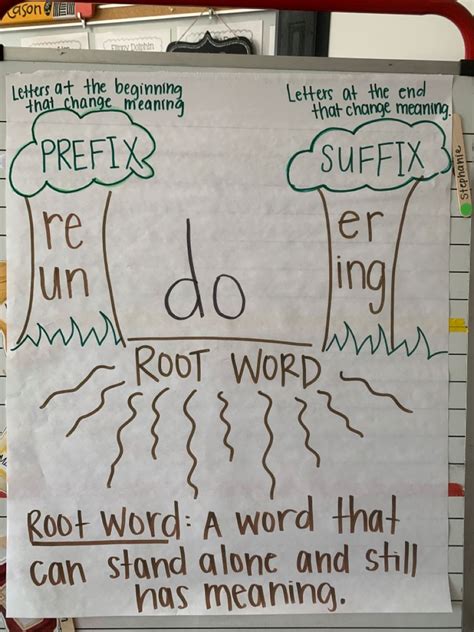 ason
Letters at the beginning
that change meaning
PREFIX
re
un
Letters at the end
that change meaning.
SUFFIX
er
ing
Stephanie
do
ROOT WORD
Root Word: A word that
can stand alone and still
has meaning.